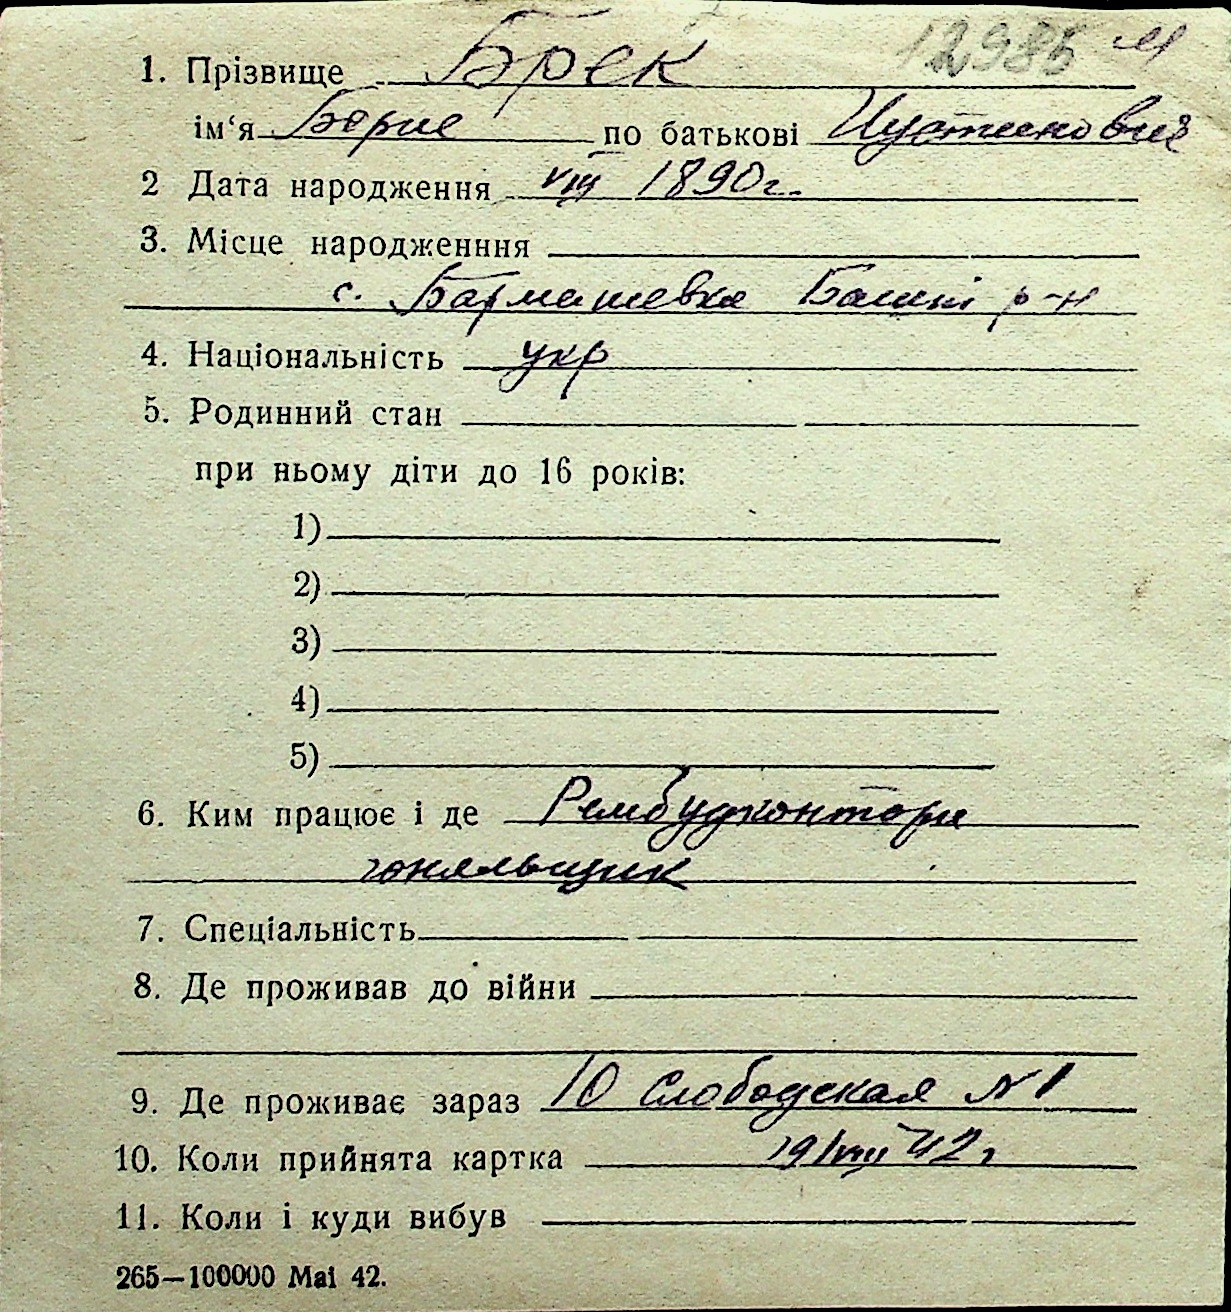 12985 М
1. Прізвище Брек
ім‘я Борис по батькові Иустинович
2 Дата народження VIII 1890г.
3. Місце народженння
с. Бармашевка Башт р-н
4. Національність укр
5. Родинний стан
при ньому діти до 16 років:
1)
2)
3)
4)
5)
6. Ким працює і де Рембудконтора
7. Спеціальність
8. Де проживав до війни
9. Де проживає зараз 10 Слободская № 1
10. Коли прийнята картка 19/VIII 42 г
11. Коли і куди вибув
265—100000 Mai 42.